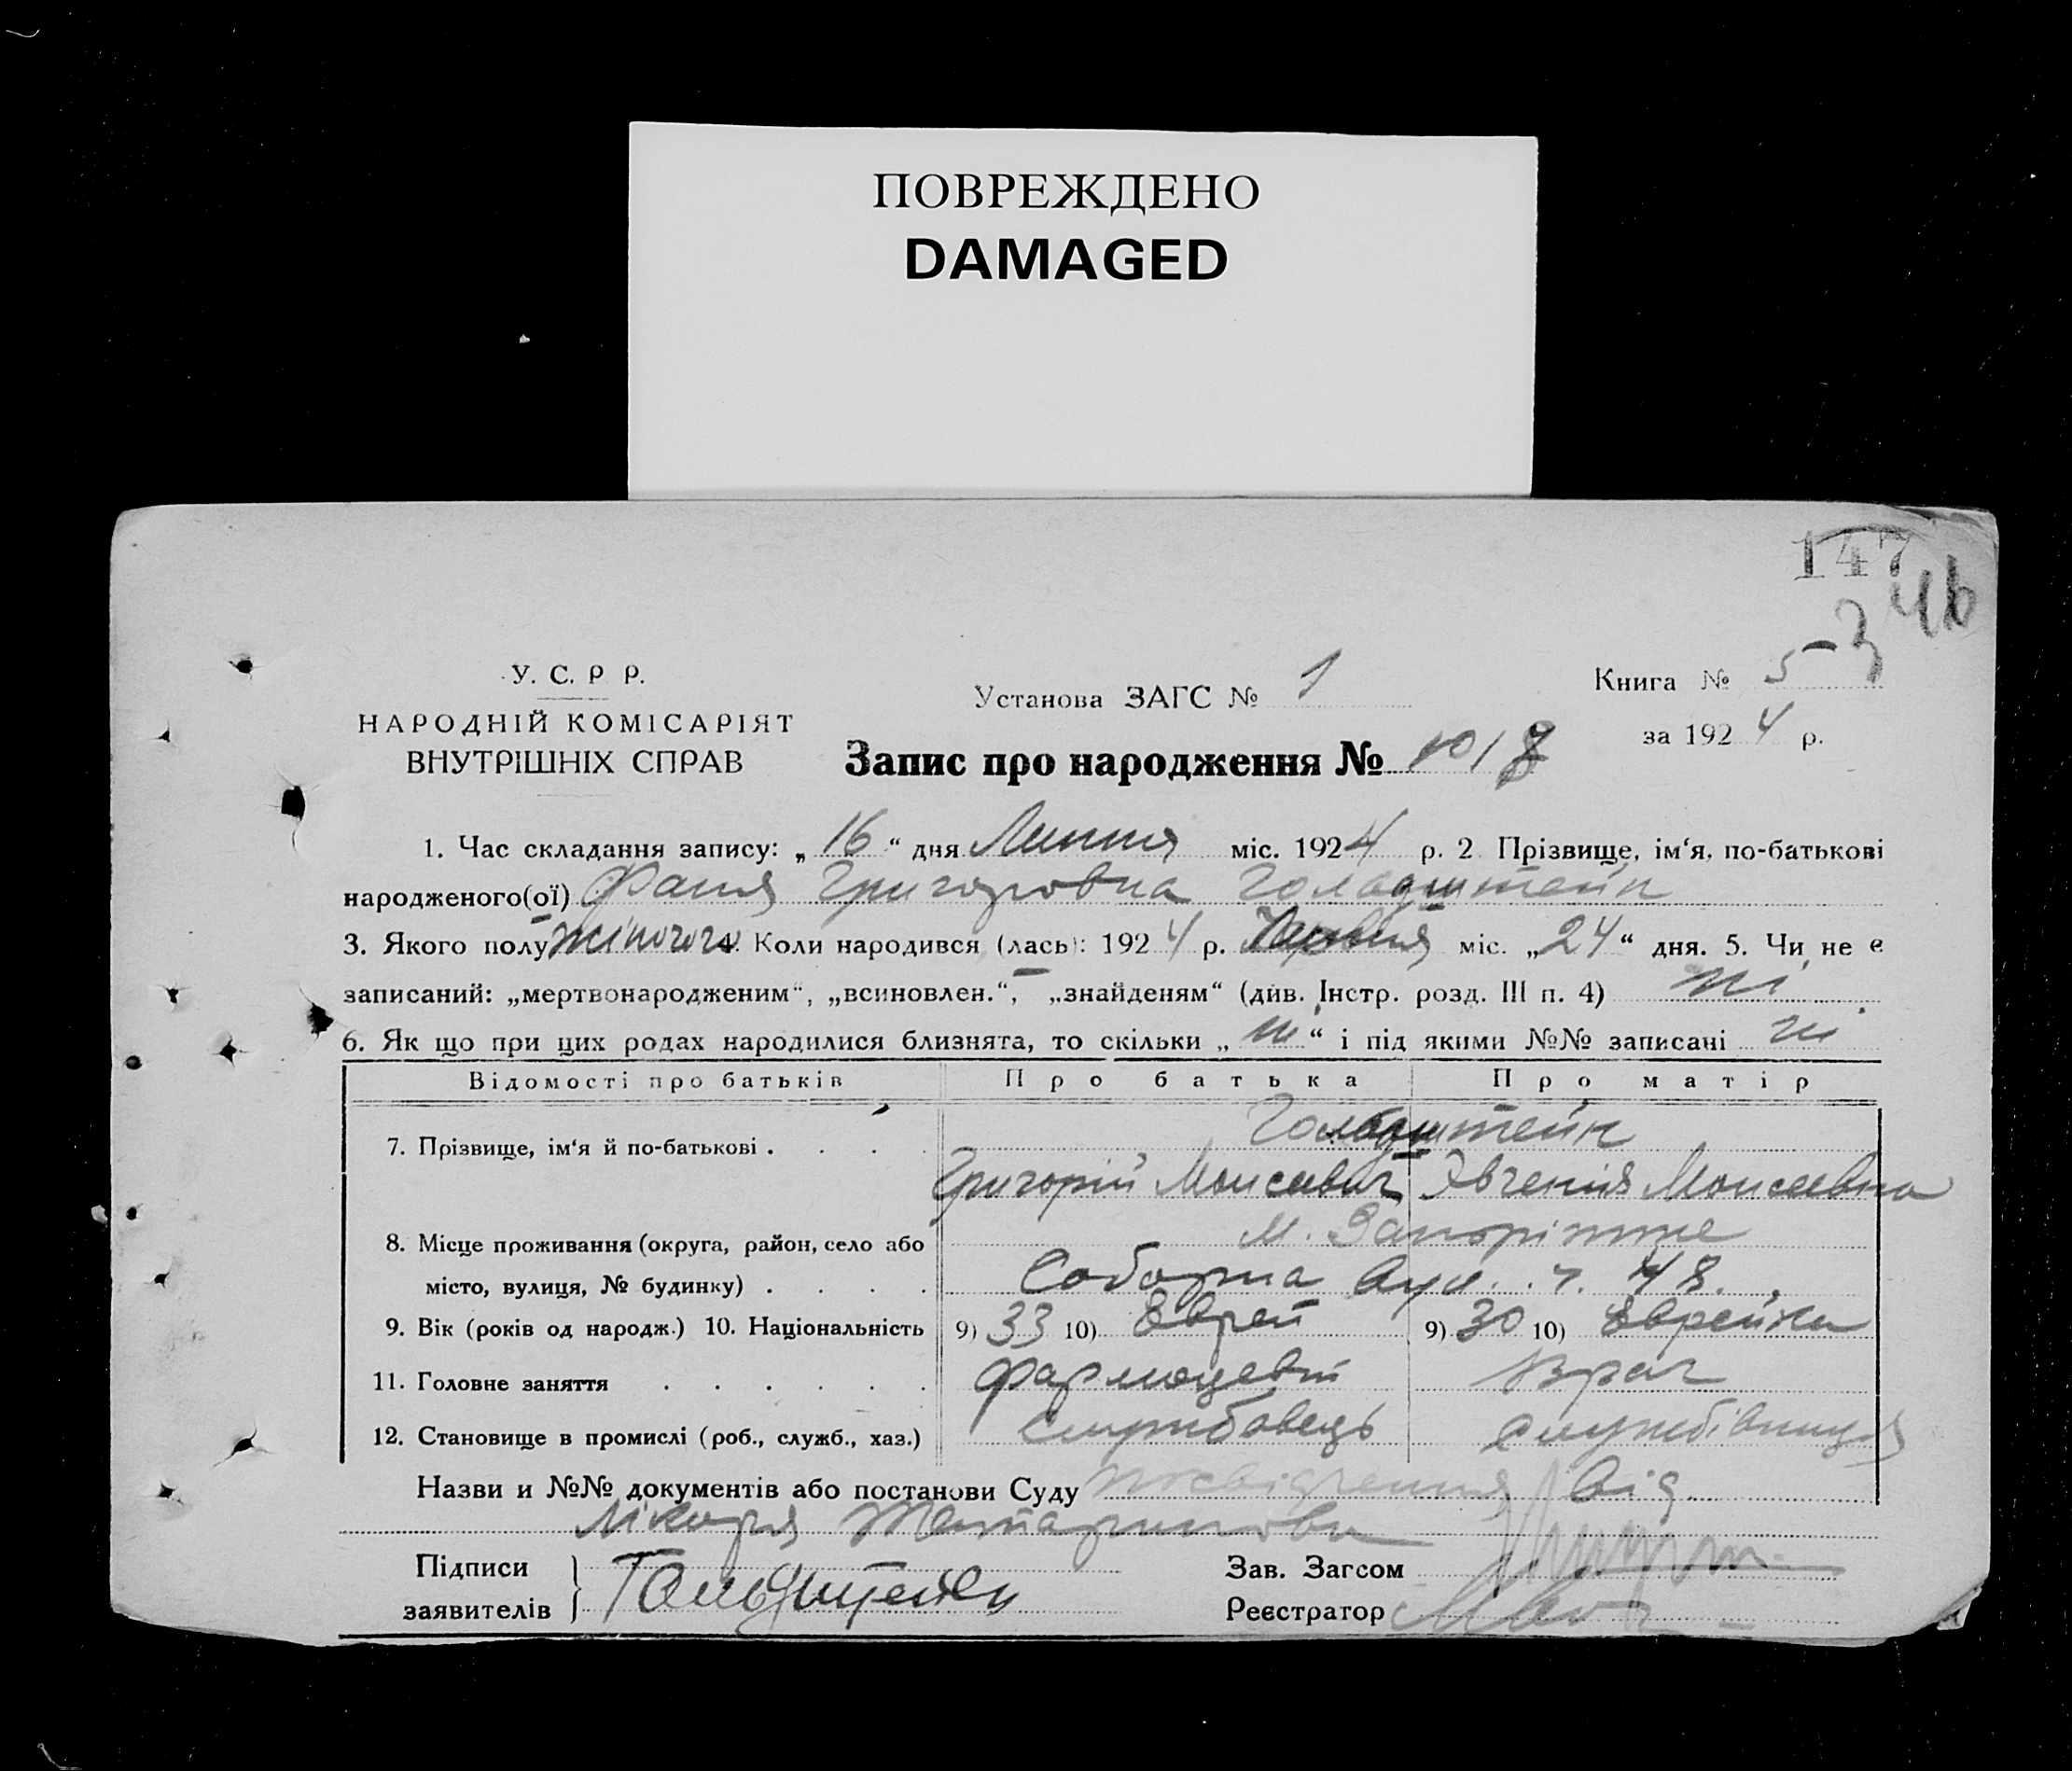 ПОВРЕЖДЕНО
DAMAGED
147
46
У. С. Р Р.
НАРОДНІЙ КОМІСАРІЯТ
ВНУТРІШНІХ СПРАВ
Установа ЗАГС № 1
Книга № 5-3
за 1924 р.
Запис про народження № 1018
1. Час складання запису: „16“ дня Липня міс. 1924 р. 2 Прізвище, ім‘я, по-батькові
народженого(ої) Фаня Григоровна Гольдштейн
3. Якого полу жіночого 4. Коли народився (лась): 1924 р. Червня міс. „24“ дня. 5. Чи не є
записаний: „мертвонародженим“, „всиновлен.“, „знайденям“ (див. Інстр. розд. III п. 4) ні
6. Як що при цих родах народилися близнята, то скільки „ні“ і під якими №№ записані ні
Відомості про батьків Про батька Про матір
7. Прізвище, ім‘я й по-батькові . . . . Гольдштейн
Григорій Моисеевич Эвгенія Моисеевна
8. Місце проживання (округа, район, село або м. Запоріжже
місто, вулиця, № будинку) . . . . Соборна вул. ч. 48.
9. Вік (років од народж.) 10. Національність 9) 33 10) Еврей 9) 30 10) Еврейка
11. Головне заняття . . . . . . Фармацевт Врач
12. Становище в промислі (роб., служб., хаз.) службовець службівниця
Назви и №№ документів або постанови Суду посвідчення від
лікаря
Підписи
заявителів } Гольдштейн
Зав. Загсом
Реєстратор